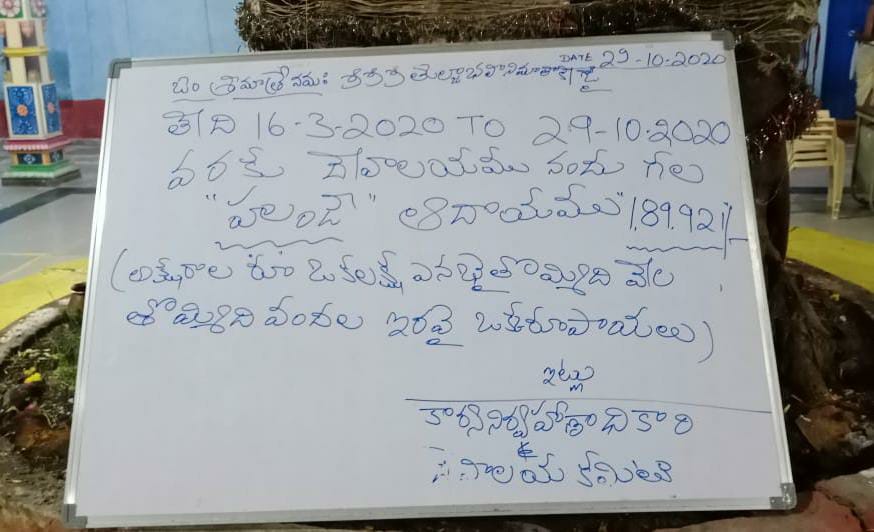 DATE 29-10-2020
ఓం శ్రీమాత్రే నమః శ్రీశ్రీశ్రీ
తేది 16-3-2020 TO 29-10-2020
వరకు దేవాలయము నందు గల
"హుండి" ఆదాయము" 1,89,921/-
(అక్షరాల రూ ఒకలక్ష ఎనభైతొమ్మిది వేల
తొమ్మిది వందల ఇరవై ఒక్కరూపాయలు)
ఇట్లు
కార్యనిర్వహణాధికారి
కమిటి